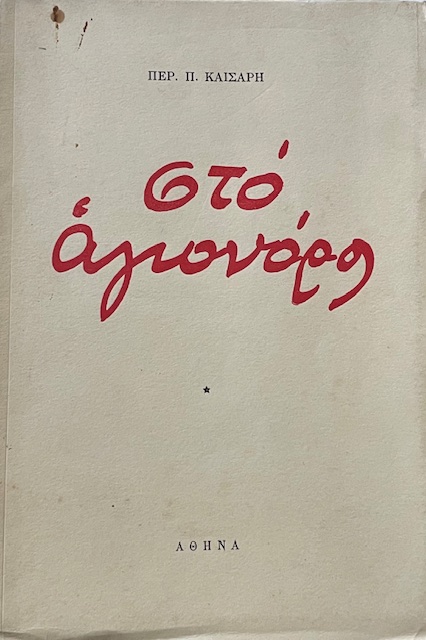 ΠΕΡ. Π. ΚΑΙΣΑΡΗ
στό
ἁγιονόρο
ΑΘΗΝΑ